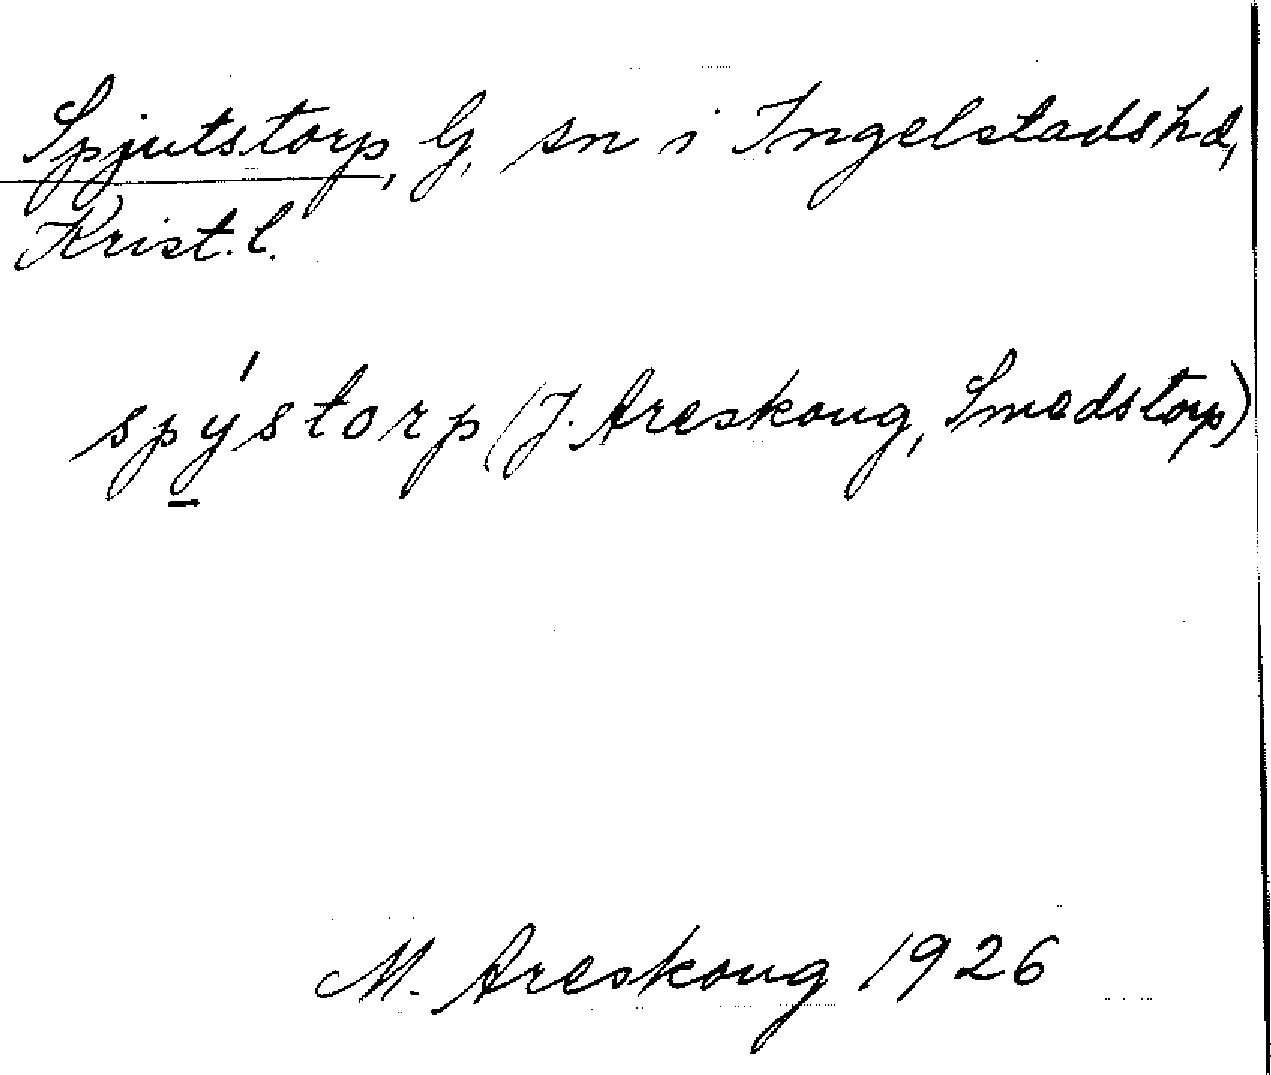 Spjutstorp, G, sn i Ingelstads hd,
Krist. l.
spýstorp (J. Areskoug, Smedstorp)
M. Areskoug 1926